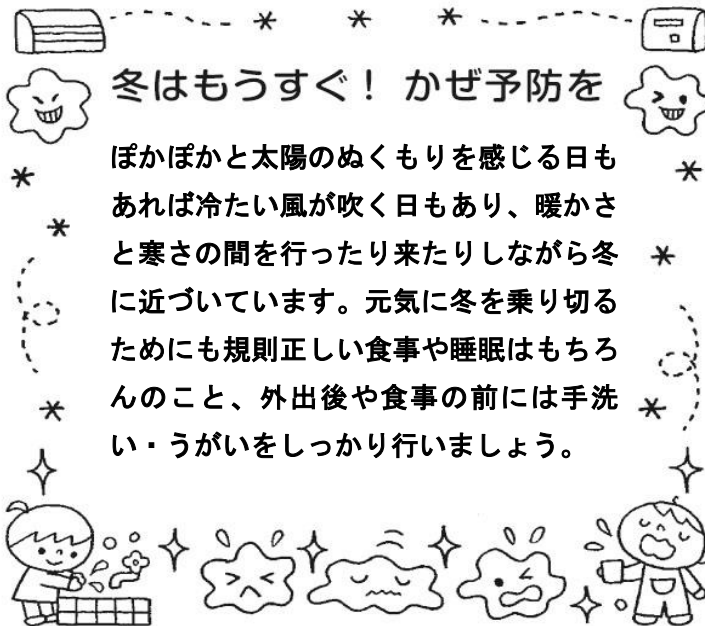 冬はもうすぐ！ かぜ予防を
ぽかぽかと太陽のぬくもりを感じる日も
あれば冷たい風が吹く日もあり、暖かさ
と寒さの間を行ったり来たりしながら冬
に近づいています。元気に冬を乗り切る
ためにも規則正しい食事や睡眠はもちろ
んのこと、外出後や食事の前には手洗
い・うがいをしっかり行いましょう。